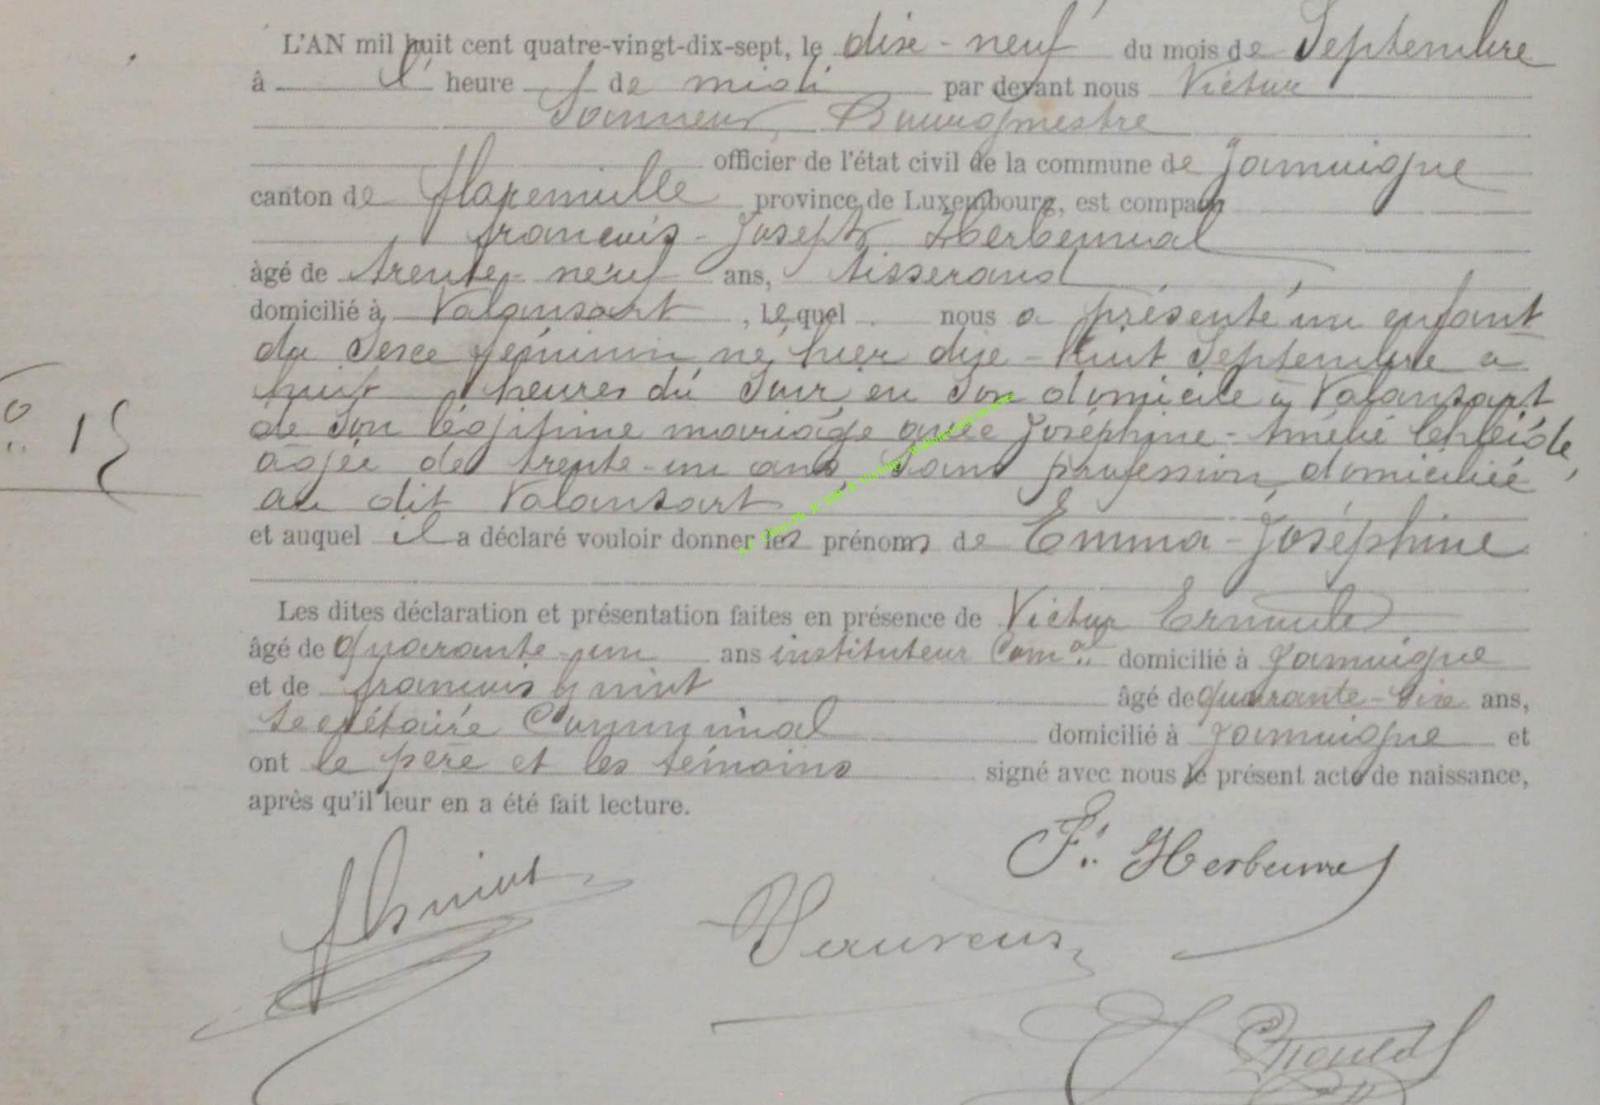 L'AN mil huit cent quatre-vingt-dix-sept, le dix-neuf du mois de Septembre
à l' heure de midi par devant nous Victor
Bourgmestre
officier de l'état civil de la commune de Jamoigne
canton de province de Luxembourg, est comparu
françois-Joseph
âgé de trente-neuf ans, tisserand
domicilié à Valansart, lequel nous a présenté un enfant
du Sexe féminin né hier dix-huit Septembre à
huit heures du Soir en Son domicile à Valansart
de Son légitime mariage avec Joséphine-Amélie
agée de trente-un ans Sans profession, domiciliée
au dit Valansart
et auquel il a déclaré vouloir donner les prénoms de Emma-Joséphine
Les dites déclaration et présentation faites en présence de Victor
âgé de quarante-un ans instituteur Com.al domicilié à Jamoigne
et de francois âgé de quarante-six ans,
Secrétaire Communal domicilié à Jamoigne et
ont le père et les témoins signé avec nous le présent acte de naissance,
après qu'il leur en a été fait lecture.